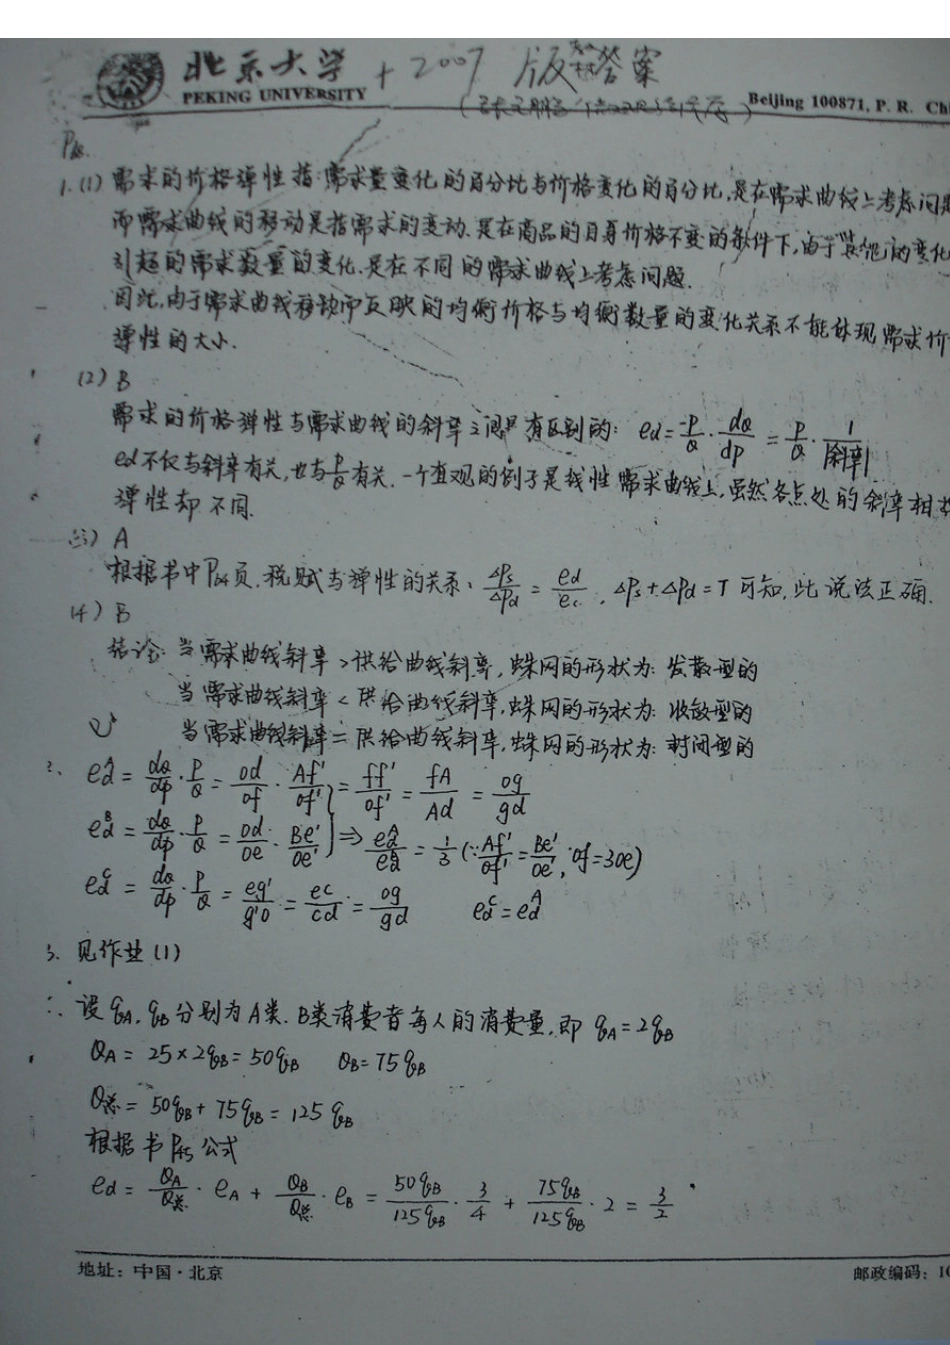 北京大学
PEKING UNIVERSITY
+2007版 答案
Beijing 100871, P. R. Chi
1.(1) 需求的价格弹性指:需求量变化的百分比与价格变化的百分比,是在需求曲线上考虑问题
而需求曲线的移动是指需求的变动.是在商品的自身价格不变的条件下,由于其他的变化
引起的需求数量的变化.是在不同的需求曲线上考虑问题.
因此,由于需求曲线移动而反映的均衡价格与均衡数量的变化关系不能体现需求价
弹性的大小.
(2) B
需求的价格弹性与需求曲线的斜率之间是有区别的: ed = -P/Q · dQ/dP = P/Q · 1/|斜率|
ed不仅与斜率有关,也与P/Q有关.一个直观的例子是线性需求曲线上,虽然各点处的斜率相
弹性却不同.
(3) A
根据书中P34页.税赋与弹性的关系: ΔPs/ΔPd = ed/es, ΔPs+ΔPd=T 可知,此说法正确.
(4) B
结论: 当需求曲线斜率>供给曲线斜率,蛛网的形状为: 发散型的
当需求曲线斜率<供给曲线斜率,蛛网的形状为: 收敛型的
当需求曲线斜率=供给曲线斜率,蛛网的形状为: 封闭型的
2、 edA = dQ/dP · P/Q = od/of · Af'/of' = ff'/of' = fA/Ad = og/gd
edB = dQ/dP · P/Q = od/oe · Be'/oe' ⇒ edA/edB = 1/3 (∵ Af'/of' = Be'/oe', of=3oe)
edC = dQ/dP · P/Q = eg'/g'o = ec/cd = og/gd edC = edA
3. 见作业(1)
设qA, qB分别为A类、B类消费者每人的消费量,即 qA=2qB
QA = 25×2qB = 50qB QB = 75qB
Q总 = 50qB + 75qB = 125qB
根据书P45公式
ed = QA/Q总 · eA + QB/Q总 · eB = 50qB/125qB · 3/4 + 75qB/125qB · 2 = 3/2
地址：中国·北京
邮政编码：10